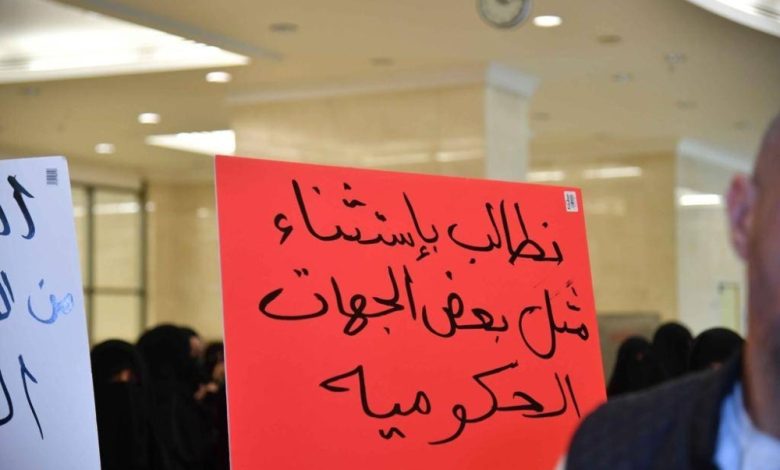 نطالب بإستثناء
مثل بعض الجهات
الحكوميه
من